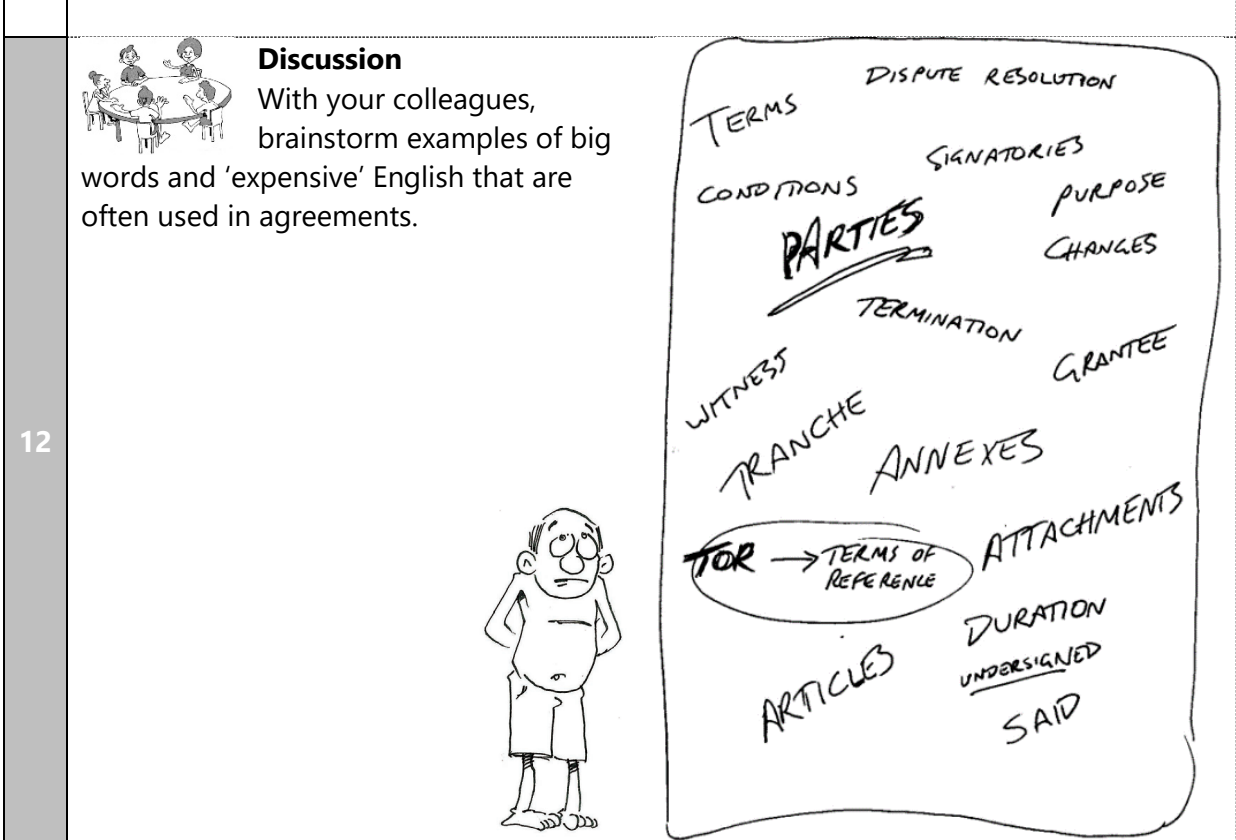 12
Discussion
With your colleagues,
brainstorm examples of big
words and ‘expensive’ English that are
often used in agreements.
DISPUTE RESOLUTION
TERMS
SIGNATORIES
CONDITIONS
PURPOSE
PARTIES
CHANGES
TERMINATION
GRANTEE
WITNESS
TRANCHE
ANNEXES
ATTACHMENTS
TOR → TERMS OF
REFERENCE
DURATION
UNDERSIGNED
ARTICLES
SAID